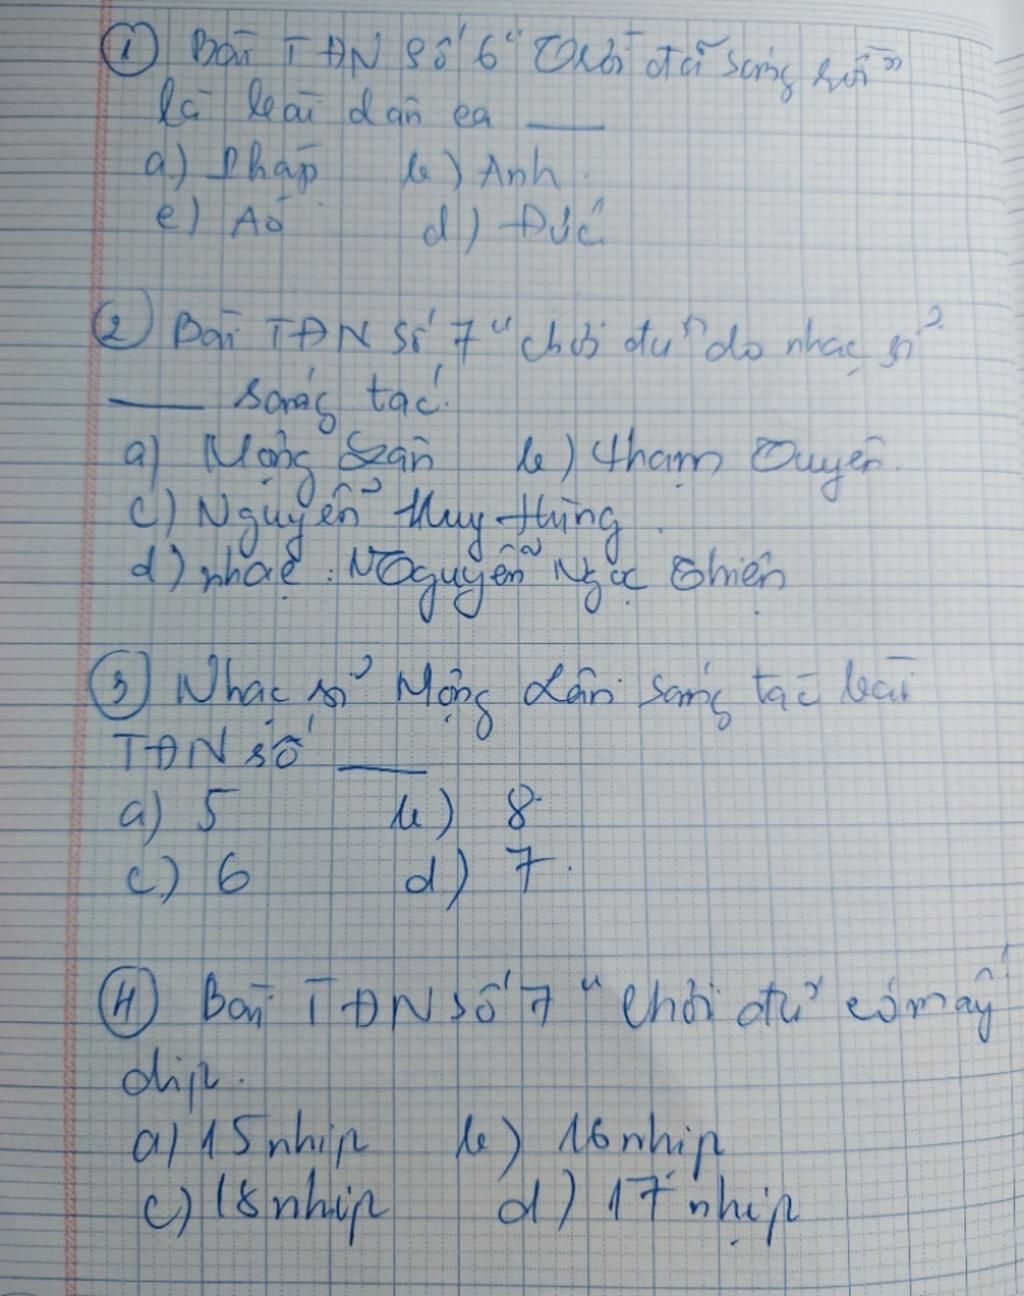 ① Bài TĐN số 6 "Trời đã sáng rồi"
là bài dân ca ___
a) Pháp b) Anh.
c) Áo d) Đức.
② Bài TĐN số 7 "chơi đu" do nhạc sĩ
___ sáng tác.
a) Mộng Lân b) Phạm Tuyên.
c) Nguyễn Huy Hùng.
d) nhạc: Nguyễn Ngọc Thiện
③ Nhạc sĩ Mộng Lân sáng tác bài
TĐN số ___
a) 5 b) 8
c) 6 d) 7.
④ Bài TĐN số 7 "Chơi đu" có mấy
dịp.
a) 15 nhịp b) 16 nhịp
c) 18 nhịp d) 17 nhịp